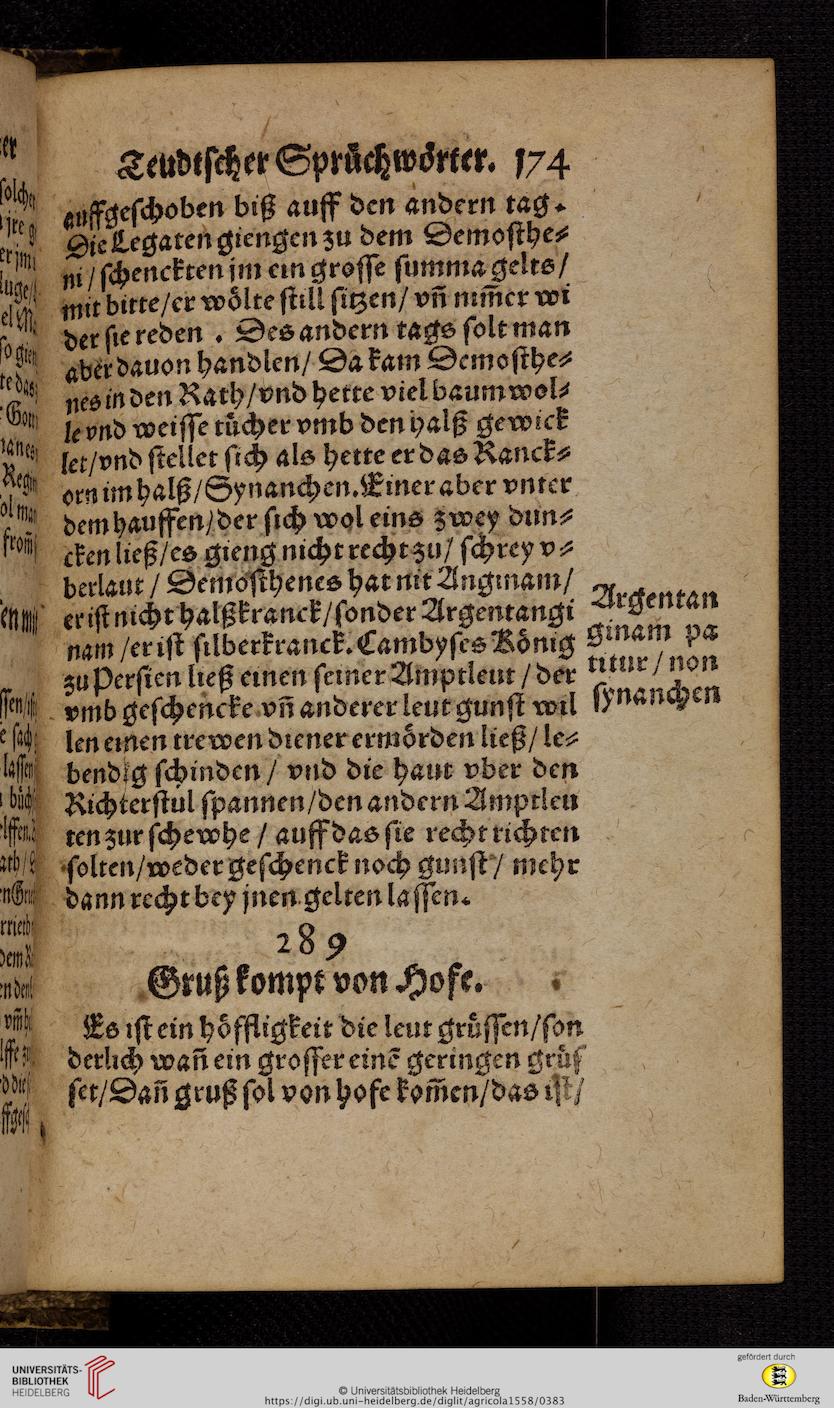 Teudtscher Sprůchwörter. 174
auffgeschoben biß auff den andern tag.
Die Legaten giengen zu dem Demosthe⸗
ni / schenckten jm ein grosse summa gelts /
mit bitte / er wölte still sitzen / vñ nim̃er wi
der sie reden . Des andern tags solt man
aber dauon handlen / Da kam Demosthe⸗
nes in den Rath / vnd hette viel baumwol⸗
le vnd weisse tůcher vmb den halß gewick
let / vnd stellet sich als hette er das Ranck⸗
orn im halß / Synanchen. Einer aber vnter
dem hauffen / der sich wol eins zwey dun⸗
cken ließ / es gieng nicht recht zu / schrey v⸗
berlaut / Demosthenes hat nit Anginam /
er ist nicht halßkranck / sonder Argentangi
nam / er ist silberkranck. Cambyses König
zu Persien ließ einen seiner Amptleut / der
vmb geschencke vñ anderer leut gunst wil
len einen trewen diener ermörden ließ / le⸗
bendig schinden / vnd die haut vber den
Richterstul spannen / den andern Amptleu
ten zur schewhe / auff das sie recht richten
solten / weder geschenck noch gunst / mehr
dann recht bey jnen gelten lassen.
Argentan
ginam pa
titur / non
synanchen
289
Gruß kompt von Hofe.
Es ist ein höffligkeit die leut grůssen / son
derlich wañ ein grosser einẽ geringen grůs
set / Dañ gruß sol von hofe kom̃en / das ist /
UNIVERSITÄTS-
BIBLIOTHEK
HEIDELBERG
© Universitätsbibliothek Heidelberg
https://digi.ub.uni-heidelberg.de/diglit/agricola1558/0383
gefördert durch
Baden-Württemberg